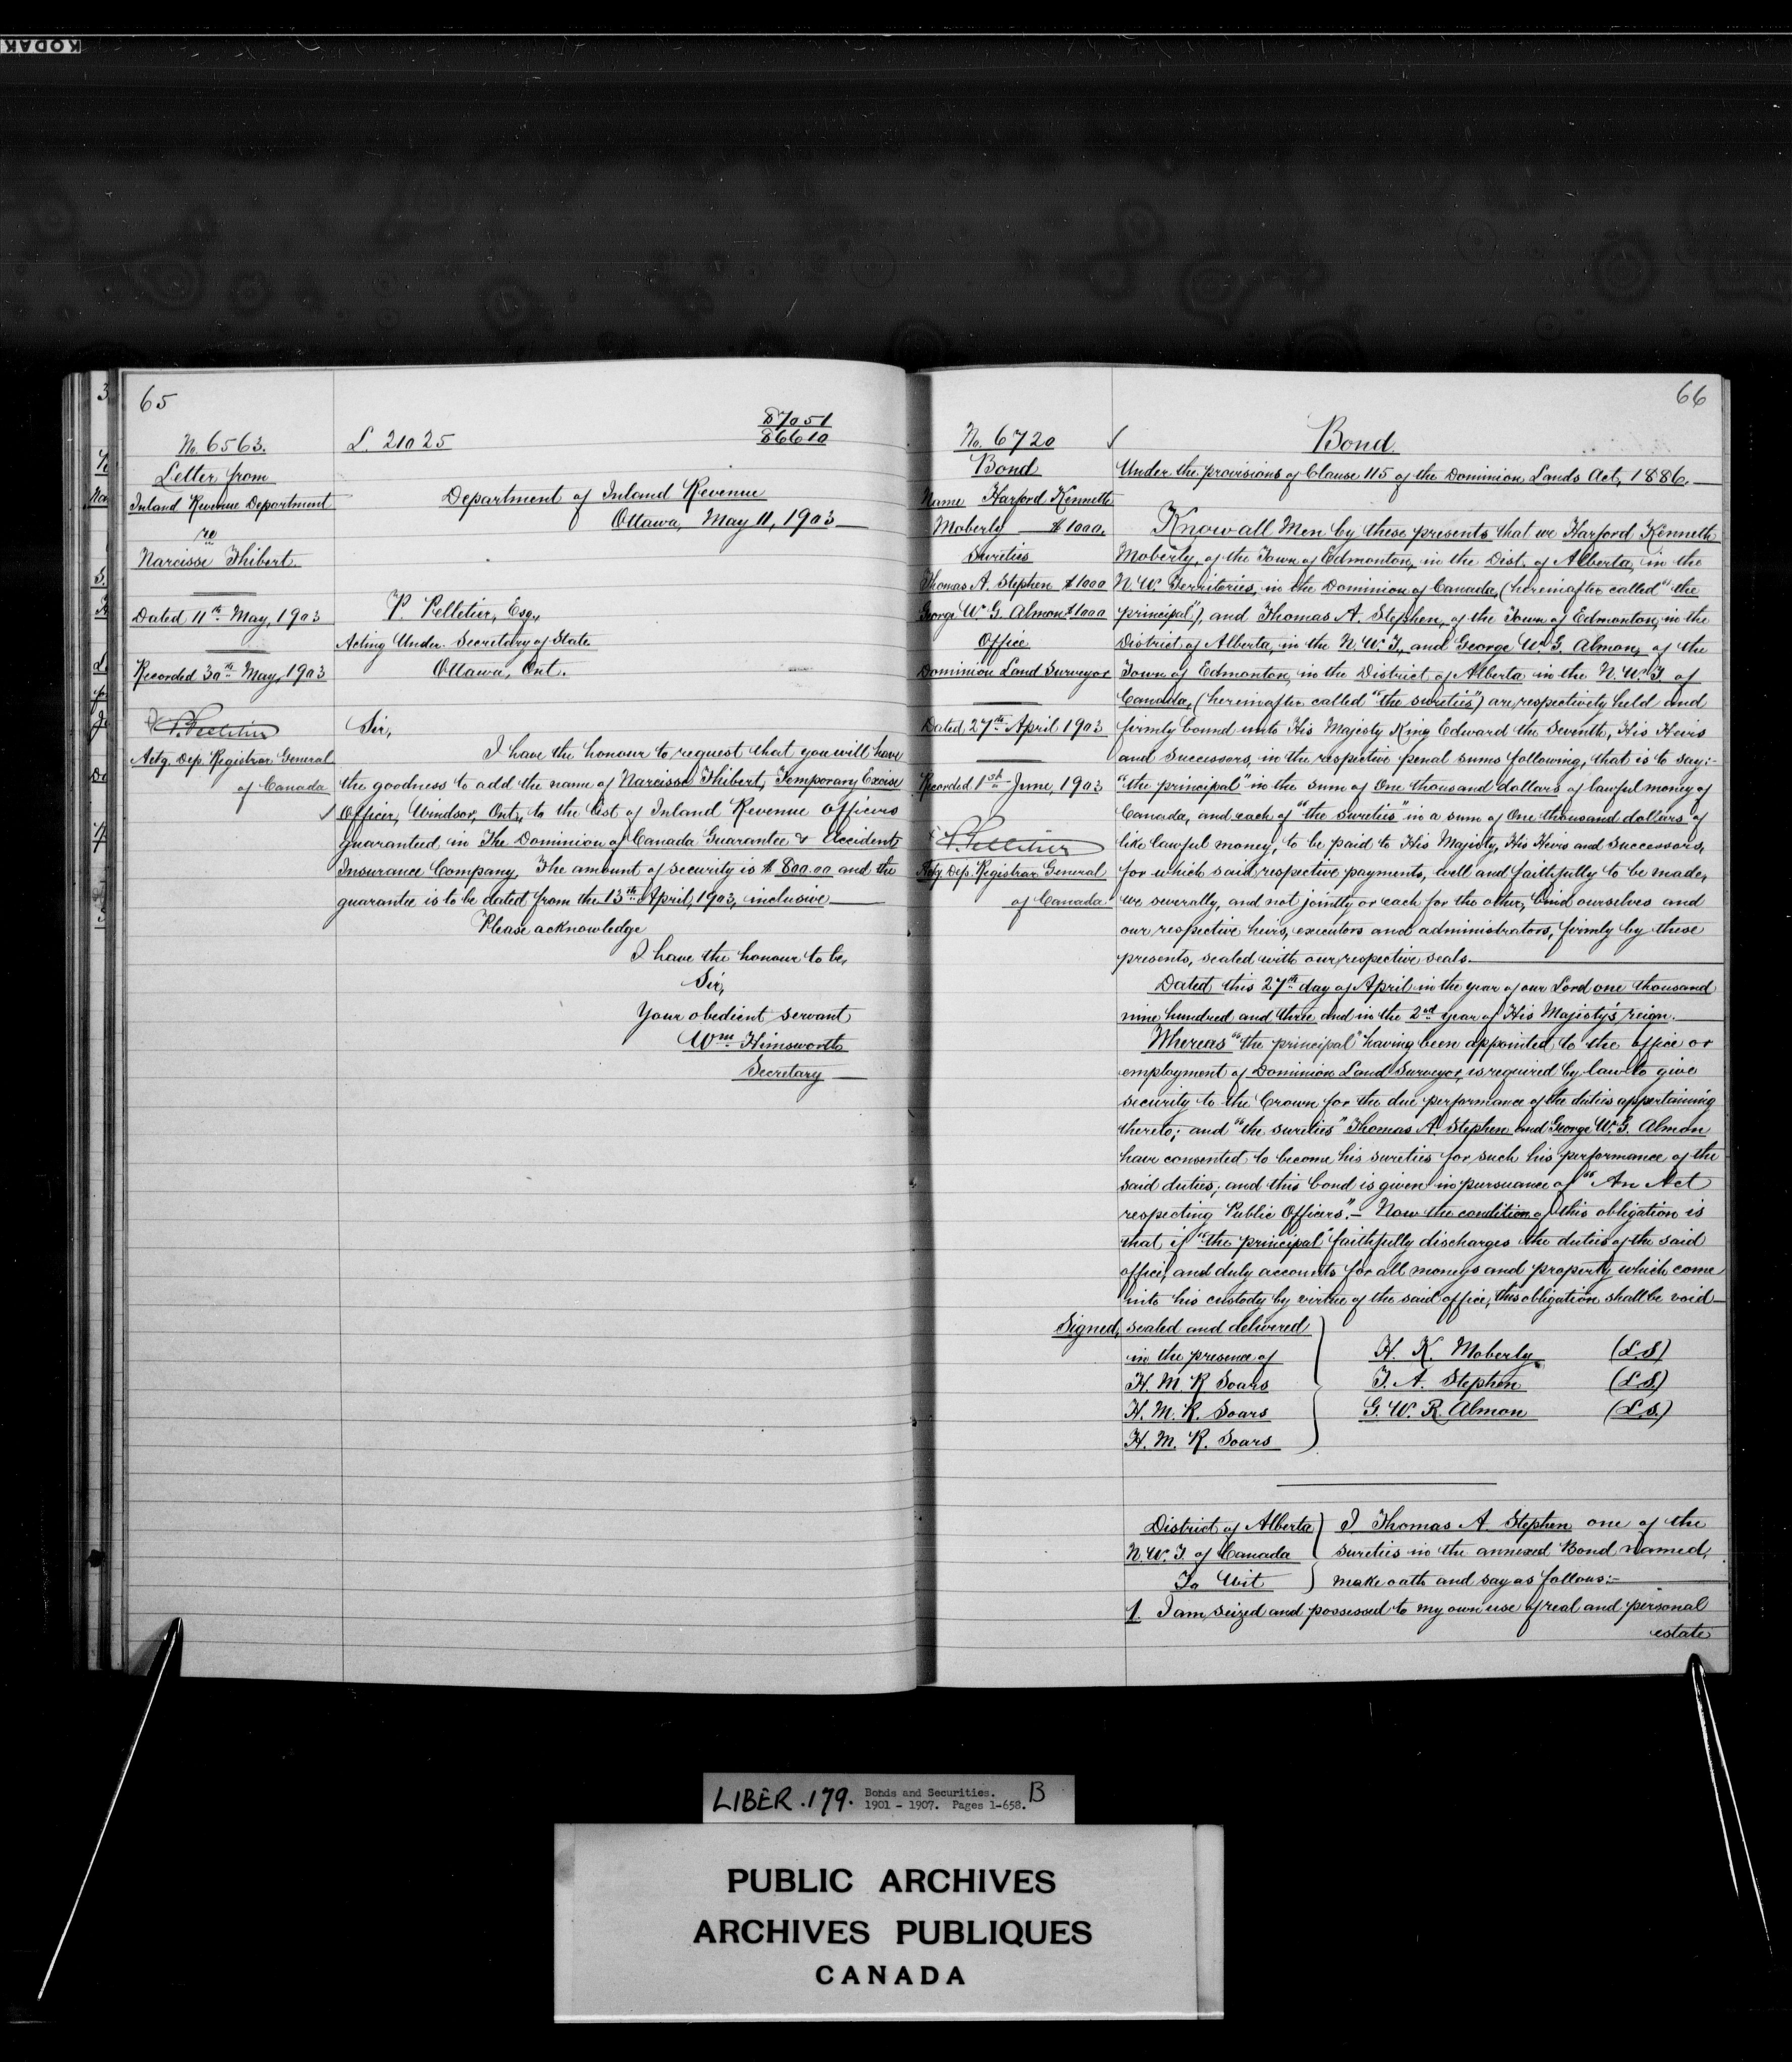 KODAK
65
No. 6563.
Letter from
Inland Revenue Department
re
Narcisse Thibert.
Dated 11th May, 1903
Recorded 30th May, 1903
P. Pelletier
Actg. Dep. Registrar General
of Canada
L. 21025
87051
86610
Department of Inland Revenue
Ottawa, May 11, 1903
P. Pelletier, Esq.,
Acting Under Secretary of State
Ottawa, Ont.
Sir,
I have the honour to request that you will have
the goodness to add the name of Narcisse Thibert, Temporary Excise
Officer, Windsor, Ont., to the list of Inland Revenue Officers
guaranteed in The Dominion of Canada Guarantee & Accident
Insurance Company. The amount of security is $800.00 and the
guarantee is to be dated from the 13th April, 1903, inclusive
Please acknowledge
I have the honour to be,
Sir,
Your obedient servant
Wm Himsworth
Secretary
66
No. 6720
Bond
Name Harford Kenneth
Moberly $1000.
Sureties
Thomas A. Stephen $1000
George W. G. Almon $1000
Office
Dominion Land Surveyor
Dated 27th April 1903
Recorded 1st June, 1903
P. Pelletier
Actg Dep. Registrar General
of Canada
Bond
Under the provisions of Clause 115 of the Dominion Lands Act, 1886.
Know all Men by these presents that we Harford Kenneth
Moberly, of the Town of Edmonton, in the Dist. of Alberta, in the
N. W. Territories, in the Dominion of Canada, (hereinafter called "the
principal"), and Thomas A. Stephen, of the Town of Edmonton, in the
District of Alberta, in the N. W. T., and George W. G. Almon, of the
Town of Edmonton, in the District of Alberta in the N. W. T of
Canada, (hereinafter called "the sureties") are respectively held and
firmly bound unto His Majesty King Edward the Seventh, His Heirs
and Successors, in the respective penal sums following, that is to say:-
"the principal" in the sum of One thousand dollars of lawful money of
Canada, and each of "the sureties" in a sum of One thousand dollars of
like lawful money, to be paid to His Majesty, His Heirs and Successors,
for which said respective payments, well and faithfully to be made,
we severally, and not jointly or each for the other, bind ourselves and
our respective heirs, executors and administrators, firmly by these
presents, sealed with our respective seals.
Dated this 27th day of April in the year of our Lord one thousand
nine hundred and three and in the 2nd year of His Majesty's reign.
Whereas "the principal" having been appointed to the office or
employment of Dominion Land Surveyor, is required by law to give
security to the Crown for the due performance of the duties appertaining
thereto; and "the sureties" Thomas A. Stephen and George W. G. Almon
have consented to become his sureties for such his performance of the
said duties; and this bond is given in pursuance of "An Act
respecting Public Officers". - Now the condition of this obligation is
that if "the principal" faithfully discharges the duties of the said
office, and duly accounts for all moneys and property which come
into his custody by virtue of the said office, this obligation shall be void
Signed, sealed and delivered
in the presence of
H. M. R Soars
H. M. R. Soars
H. M. R. Soars
H. K. Moberly (L.S)
T. A. Stephen (L.S.)
G. W. R. Almon (L.S.)
District of Alberta
N. W. T. of Canada
To Wit
I Thomas A. Stephen one of the
sureties in the annexed Bond named,
make oath and say as follows:-
1. I am seized and possessed to my own use of real and personal
estate
LIBER .179. Bonds and Securities. B
1901 - 1907. Pages 1-658.
PUBLIC ARCHIVES
ARCHIVES PUBLIQUES
CANADA